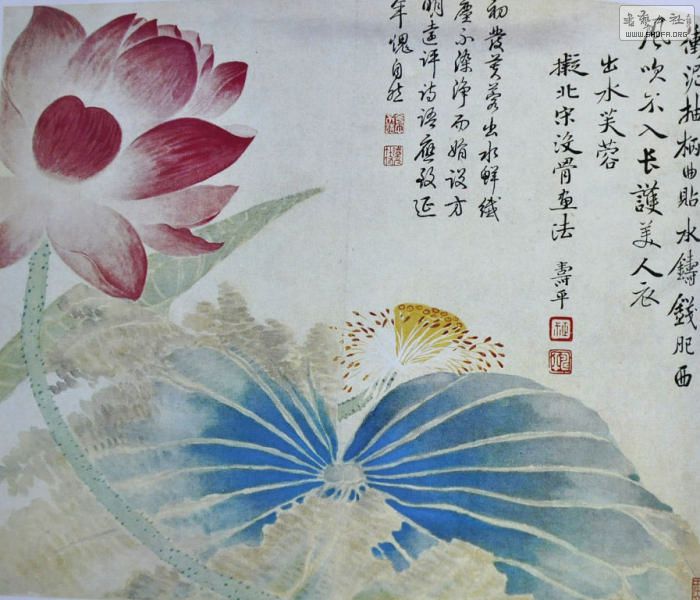 衝泥抽柄曲貼水鑄錢肥西
風吹不入長護美人衣
出水芙蓉
擬北宋没骨畫法 壽平
初發芙蓉出水鮮纖
塵不染淨而娟設方
明遠評詩語應致延
年愧自然
WWW.SHUFA.ORG